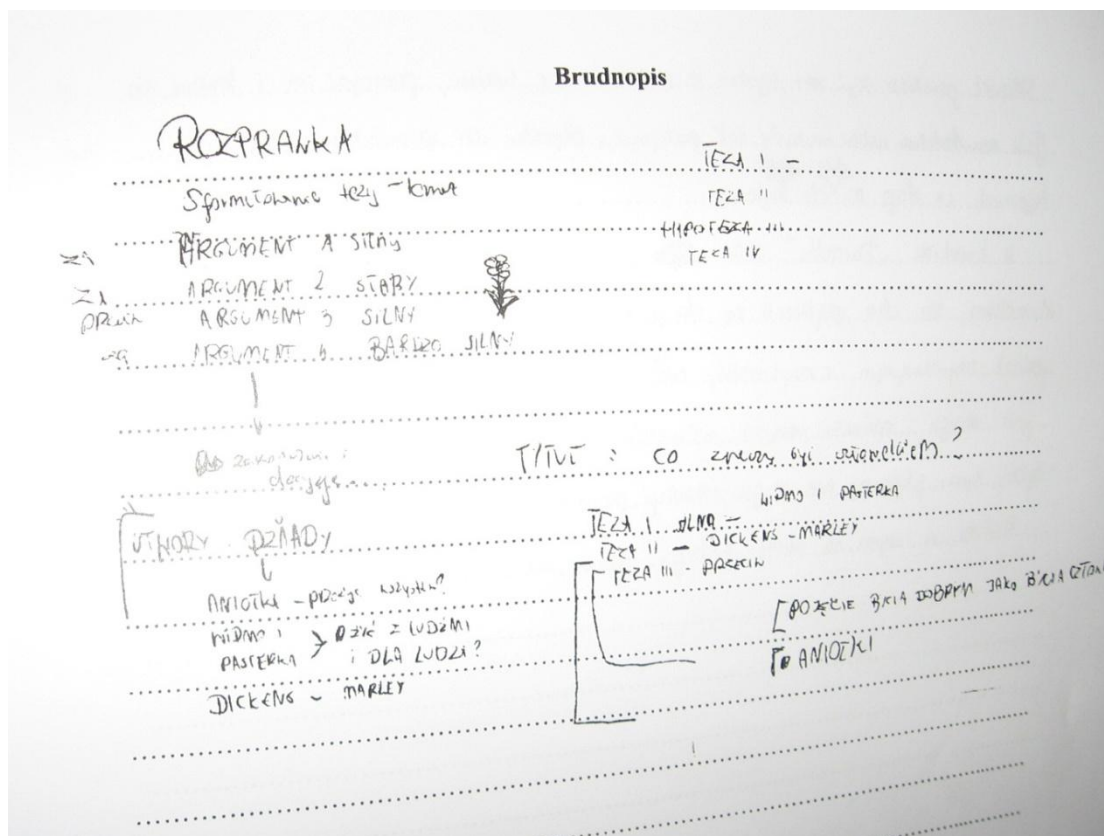 Brudnopis
ROZPRAWKA
Sformułowanie tezy - temat
ARGUMENT A SILNY
ARGUMENT 2 SŁABY
ARGUMENT 3 SILNY
ARGUMENT BARDZO SILNY
TEZA I -
TEZA II
HIPOTEZA III
TEZA IV
TYTUŁ : CO znaczy być człowiekiem?
UTWORY DZIADY
ANIOŁKI - wszystko?
WIDMO I
PASTERKA
ŻYĆ Z LUDŹMI
I DLA LUDZI?
DICKENS - MARLEY
TEZA I - WIDMO I PASTERKA
TEZA II - DICKENS - MARLEY
TEZA III - PRZECIW
POJĘCIE BYCIA DOBRYM JAKO BYCIA
ANIOŁKI